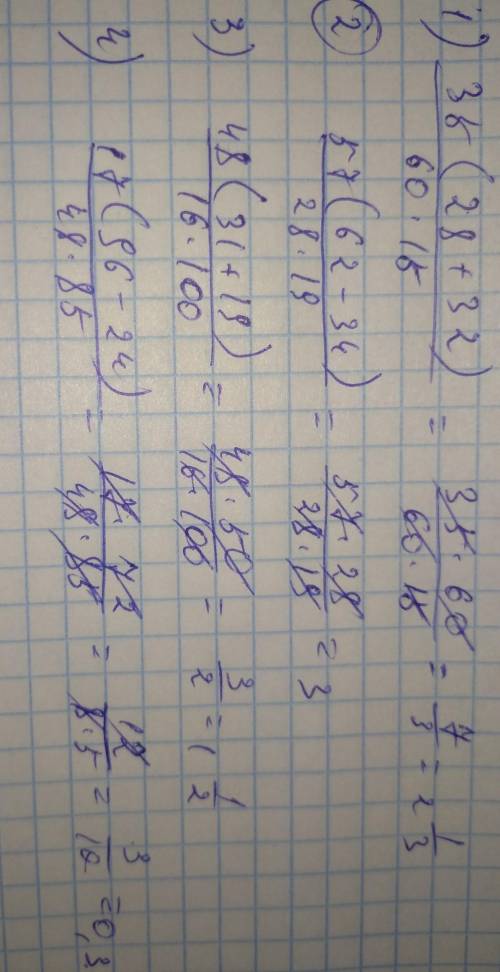 1) 35(28+32)/60·15 = 35·60/60·15 = 7/3 = 2 1/3
2 57(62-34)/28·19 = 57·28/28·19 = 3
3) 48(31+19)/16·100 = 48·50/16·100 = 3/2 = 1 1/2
4) 17(96-24)/48·85 = 17·72/48·85 = 12/8·5 = 3/10 = 0,3